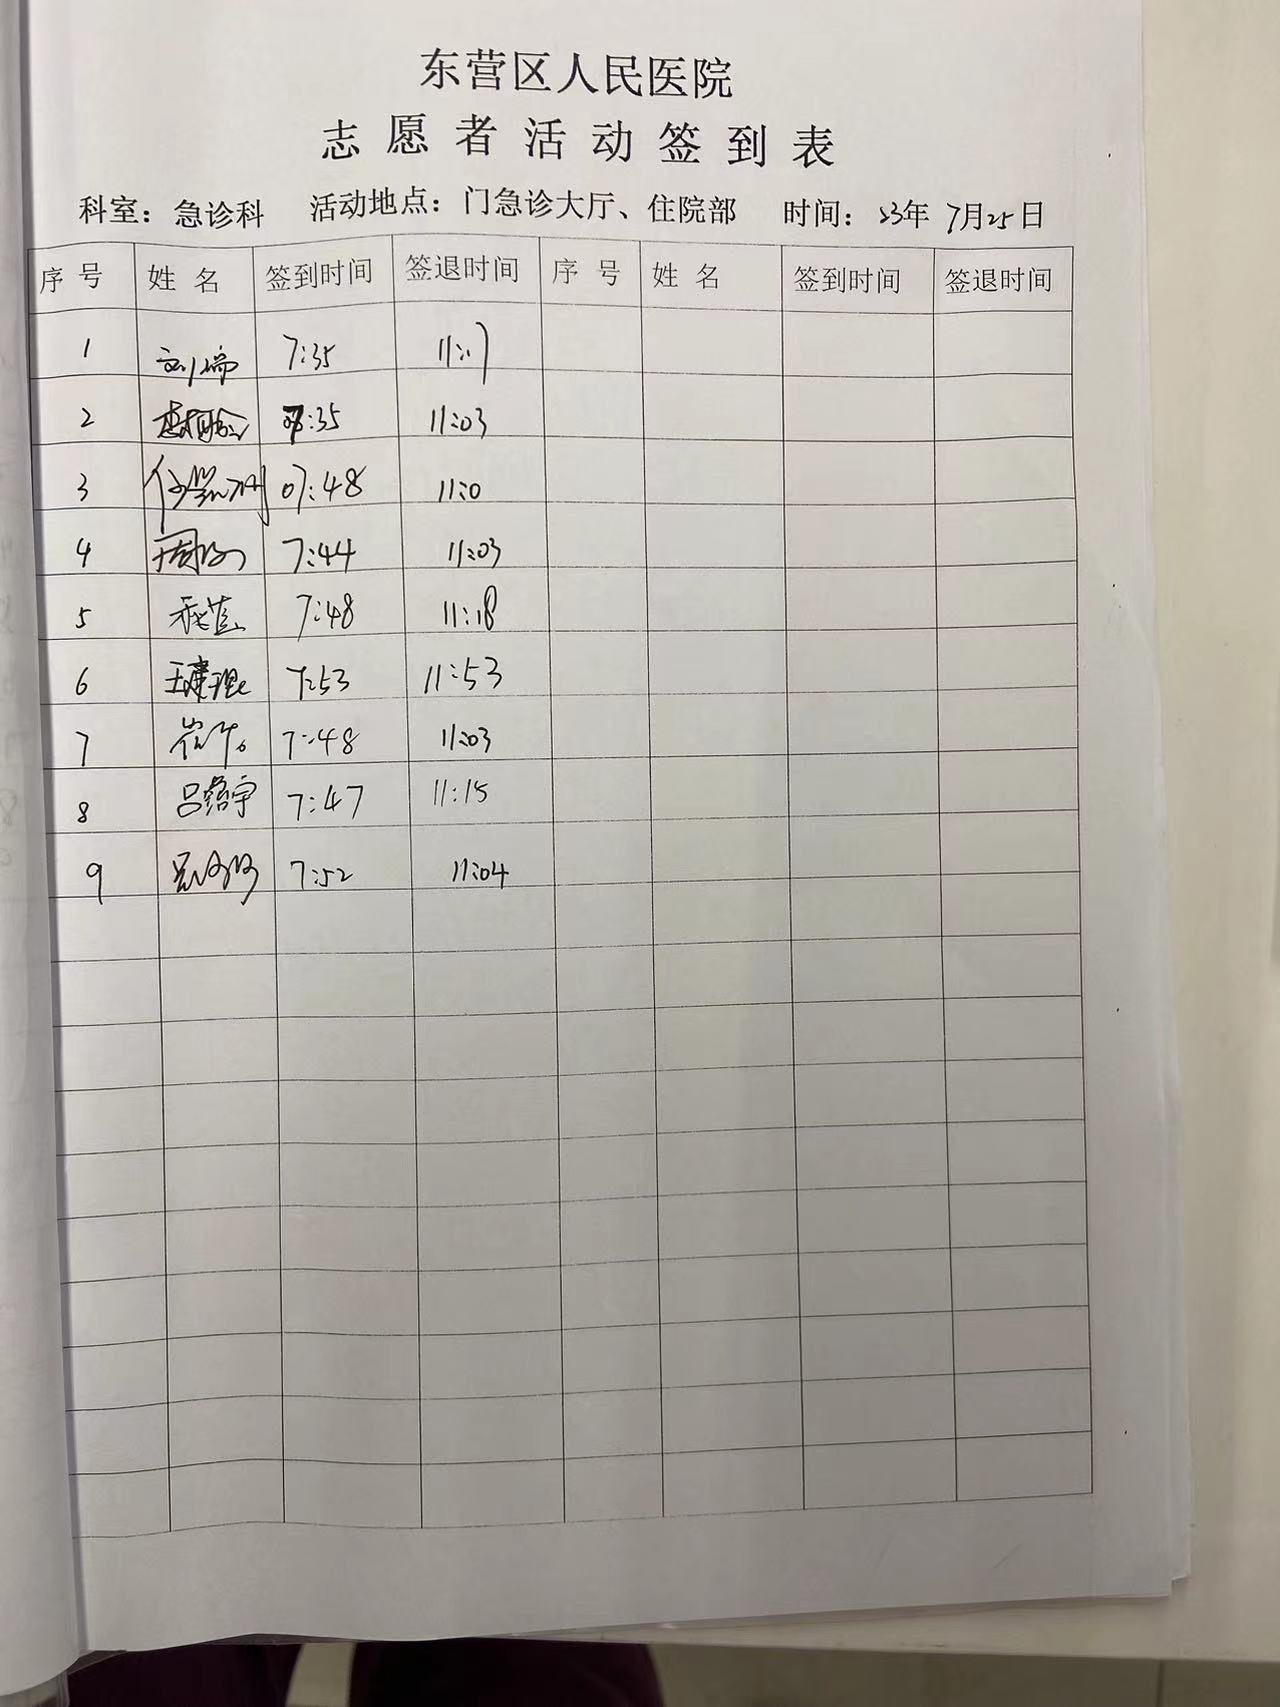 东营区人民医院
志愿者活动签到表
科室：急诊科 活动地点：门急诊大厅、住院部 时间：23年 7月25日
序号 姓名 签到时间 签退时间 序号 姓名 签到时间 签退时间
1 刘瑞 7:35 11:17
2 07:35 11:03
3 07:48 11:0
4 7:44 11:03
5 7:48 11:18
6 王建琨 7:53 11:53
7 7:48 11:03
8 吕绪宇 7:47 11:15
9 7:52 11:04